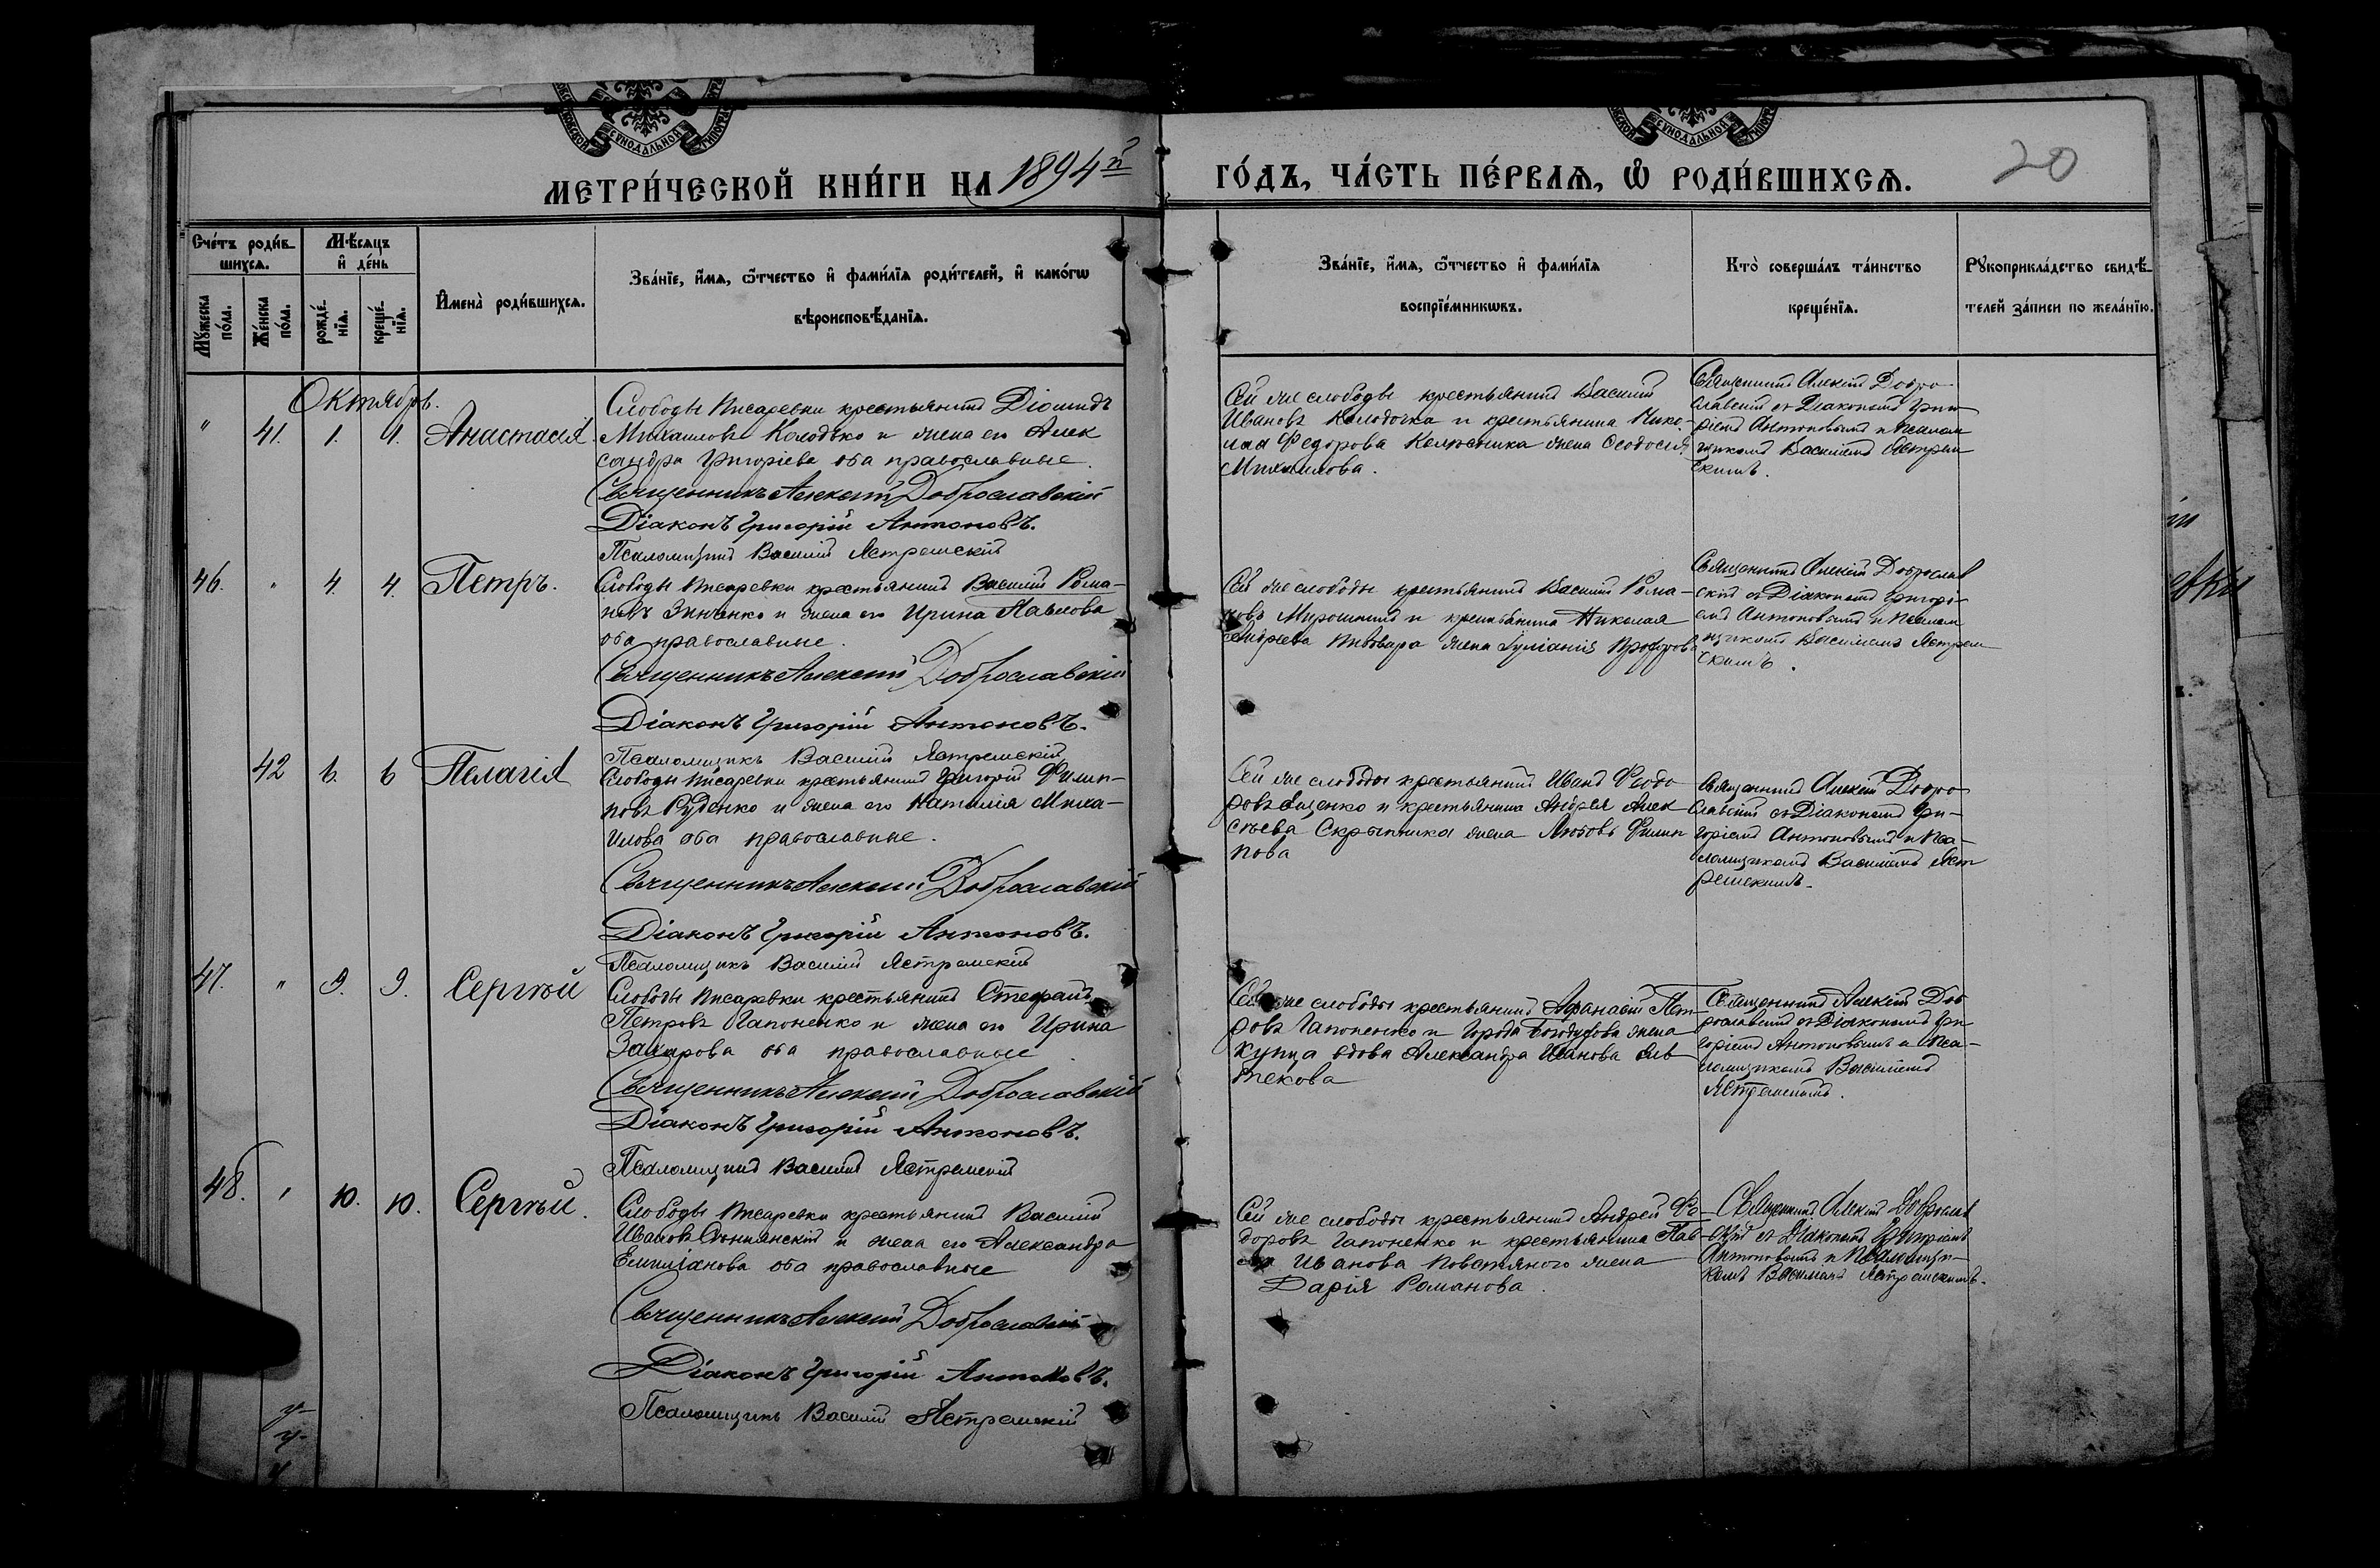 СѴНОДАЛЬНОЙ
СѴНОДАЛЬНОЙ
МЕТРИ́ЧЕСКОЙ КНИ́ГИ НА 1894й ГО́ДЪ, ЧА́СТЬ ПЕ́РВАѦ, Ѡ РОДИ́ВШИХСѦ.
20
Сче́тъ роди́в-
шихсѧ.
Мѣ́сѧцъ
и҆ де́нь
Мꙋ́жеска
по́ла.
Же́нска
по́ла.
рожде́-
нїѧ.
креще́-
нїѧ.
И҆мена̀ роди́вшихсѧ.
Зва́нїе, и҆́мѧ, ѻ҆́тчество и҆ фами́лїѧ роди́телей, и҆ како́гѡ
вѣроисповѣ́данїѧ.
Зва́нїе, и҆́мѧ, ѻ҆́тчество и҆ фами́лїѧ
воспрїе́мникѡвъ.
Кто̀ соверша́лъ та́инство
креще́нїѧ.
Рꙋкоприкла́дство свидѣ́-
телей за́писи по жела́нїю.
Октябрь.
" 41. 1. 1. Анастасія.
Слободы Писаревки крестьянинъ Діомидъ
Михаиловъ Колодько и жена его Алек
сандра Григоріева оба православные.
Священникъ Алексій Доброславскій
Діаконъ Григорій Антоновъ.
Псаломщикъ Василій Ястремскій
Сей же слободы крестьянинъ Василій
Ивановъ Колодочка и крестьянина Нико-
лая Федорова жена Ѳеодосія
Михаилова.
Священникъ Алексій Добро
славскій съ Діакономъ Григо
ріемъ Антоновымъ и Псалом
щикомъ Василіемъ Ястрем
скимъ.
46. " 4. 4. Петръ.
Слободы Писаревки крестьянинъ Василій Рома-
новъ Зинченко и жена его Ирина Павлова
оба православные.
Священникъ Алексій Доброславскій
Діаконъ Григорій Антоновъ.
Псаломщикъ Василій Ястремскій
Сей же слободы крестьянинъ Василій Рома-
новъ и крестьянина Николая
Андреева Пивовара жена Іуліанія
Священникъ Алексій Доброслав
скій съ Діакономъ Григорі-
емъ Антоновымъ и Псалом
щикомъ Василіемъ Ястрем
скимъ.
42 6. 6 Пелагія
Слободы Писаревки крестьянинъ Григорій Филип-
повъ Руденко и жена его Наталія Миха-
илова оба православные.
Священникъ Алексій Доброславскій
Діаконъ Григорій Антоновъ.
Псаломщикъ Василій Ястремскій
Сей же слободы крестьянинъ Иванъ Феодо
ровъ и крестьянина Андрея Алек
сѣева Скрыпника жена Любовь Филип
пова
Священникъ Алексій Добро
славскій съ Діакономъ Гри-
горіемъ Антоновымъ и Пса-
ломщикомъ Василіемъ Яст
ремскимъ.
47. " 9. 9. Сергѣй
Слободы Писаревки крестьянинъ Стефанъ
Петровъ Гапоненко и жена его Ирина
Захарова оба православные.
Священникъ Алексій Доброславскій
Діаконъ Григорій Антоновъ.
Псаломщикъ Василій Ястремскій
Сей же слободы крестьянинъ Афанасій Пет-
ровъ Гапоненко и города Богодухова жена
купца вдова Александра Иванова
Священникъ Алексій Доб
рославскій съ Діакономъ Гри
горіемъ Антоновымъ и Пса-
ломщикомъ Василіемъ
Ястремскимъ.
48. " 10. 10. Сергѣй.
Слободы Писаревки крестьянинъ Василій
Ивановъ и жена его Александра
Емиліанова оба православные
Священникъ Алексій Доброславскій
Діаконъ Григорій Антоновъ.
Псаломщикъ Василій Ястремскій
Сей же слободы крестьянинъ Андрей Фе-
доровъ Гапоненко и крестьянина Пав-
ла Иванова жена
Дарія Романова.
Священникъ Алексій Доброслав
скій съ Діакономъ Григоріемъ
Антоновымъ и Псаломщи-
комъ Василіемъ Ястремскимъ.